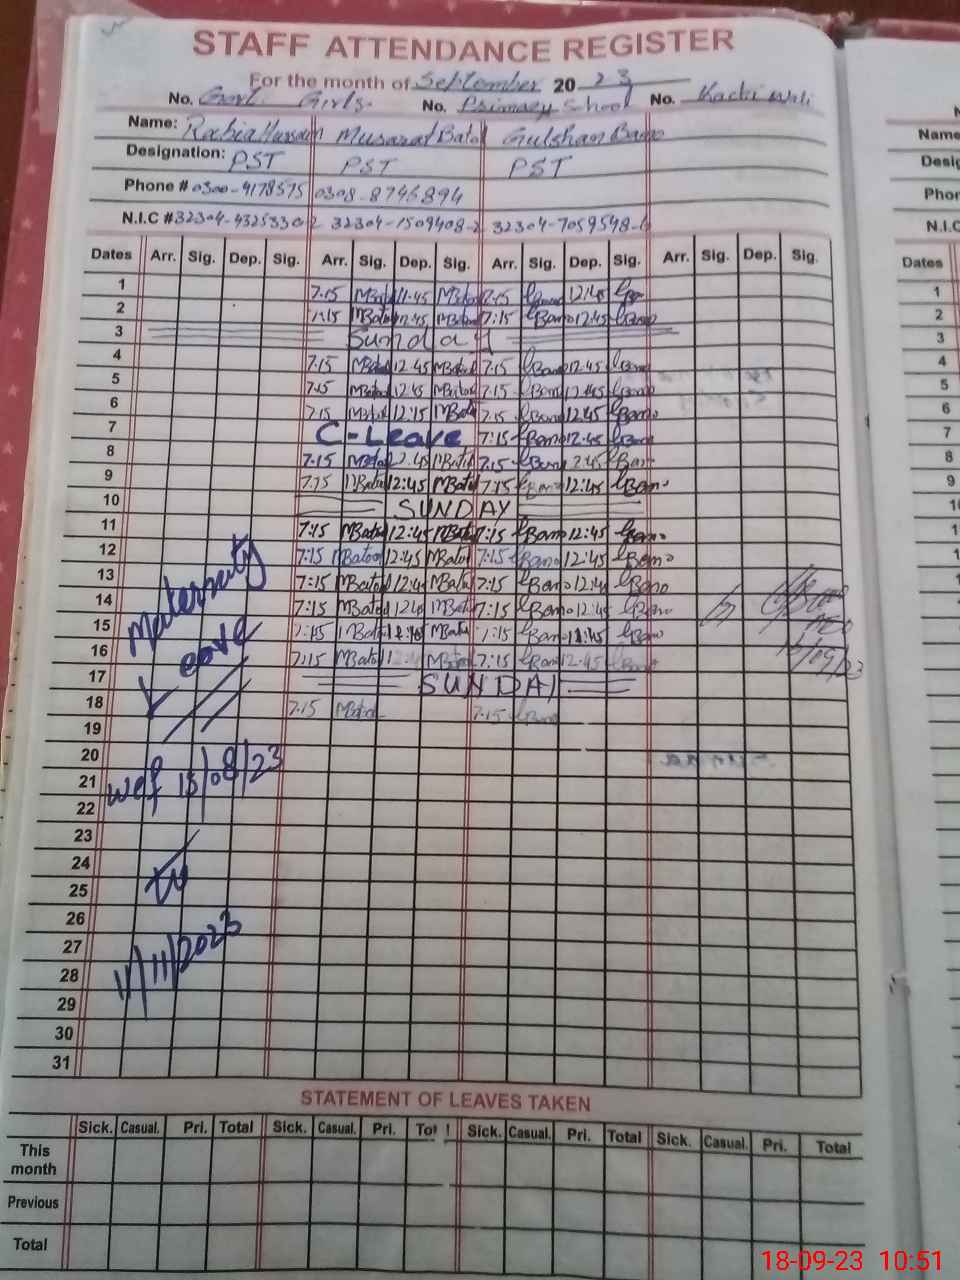 STAFF ATTENDANCE REGISTER
For the month of September 20 23
No. Govt. Girls No. Primary School No.
Name: Rabia Hussain Musarat Batol Gulshan Bano
Designation: PST PST PST
Phone # 0300-4178575 0308-8746894
N.I.C # 32304-1509408-2 32304-7059548-6
Dates Arr. Sig. Dep. Sig. Arr. Sig. Dep. Sig. Arr. Sig. Dep. Sig. Arr. Sig. Dep. Sig.
1 7.15 MBatol 11.45 MBatol 7.15 GBano 12:45 GBano
2 MBatol 12.45 MBatol 7:15 GBano 12:45 GBano
3 Sunday
4 7.15 MBatol 12.45 MBatol 7.15 GBano 12.45 GBano
5 7.15 MBatol 12.45 MBatol 7.15 GBano 12.45 GBano
6 7.15 MBatol 12:15 MBatol 7.15 GBano 12.45 GBano
7 C-Leave 7:15 GBano 12.45 GBano
8 7.15 MBatol 12.45 MBatol 7.15 GBano 12.45 GBano
9 7.15 MBatol 12:45 MBatol 7:15 GBano 12:45 GBano
10 SUNDAY
11 7:15 MBatol 12:45 MBatol 7:15 GBano 12:45 GBano
12 7:15 MBatol 12:45 MBatol 7:15 GBano 12:45 GBano
13 7:15 MBatol MBatol 7:15 GBano GBano
14 7:15 MBatol MBatol 7:15 GBano 12:45 GBano
15 MBatol MBatol 7:15 GBano 11:45 GBano
16 7:15 MBatol MBatol 7:15 GBano 12.45 GBano
16/09/23
17 SUNDAY
18 7.15 MBatol 7.15 GBano
19
20
21
22
23
24
25
26
27
28
29
30
31
Maternity
Leave
wef 15/08/23
to
11/11/2023
STATEMENT OF LEAVES TAKEN
Sick. Casual. Pri. Total Sick. Casual. Pri. Sick. Casual. Pri. Total Sick. Casual. Pri. Total
This
month
Previous
Total
Name
Phon
N.I.C
Dates
1
2
3
4
5
6
7
8
9
18-09-23 10:51